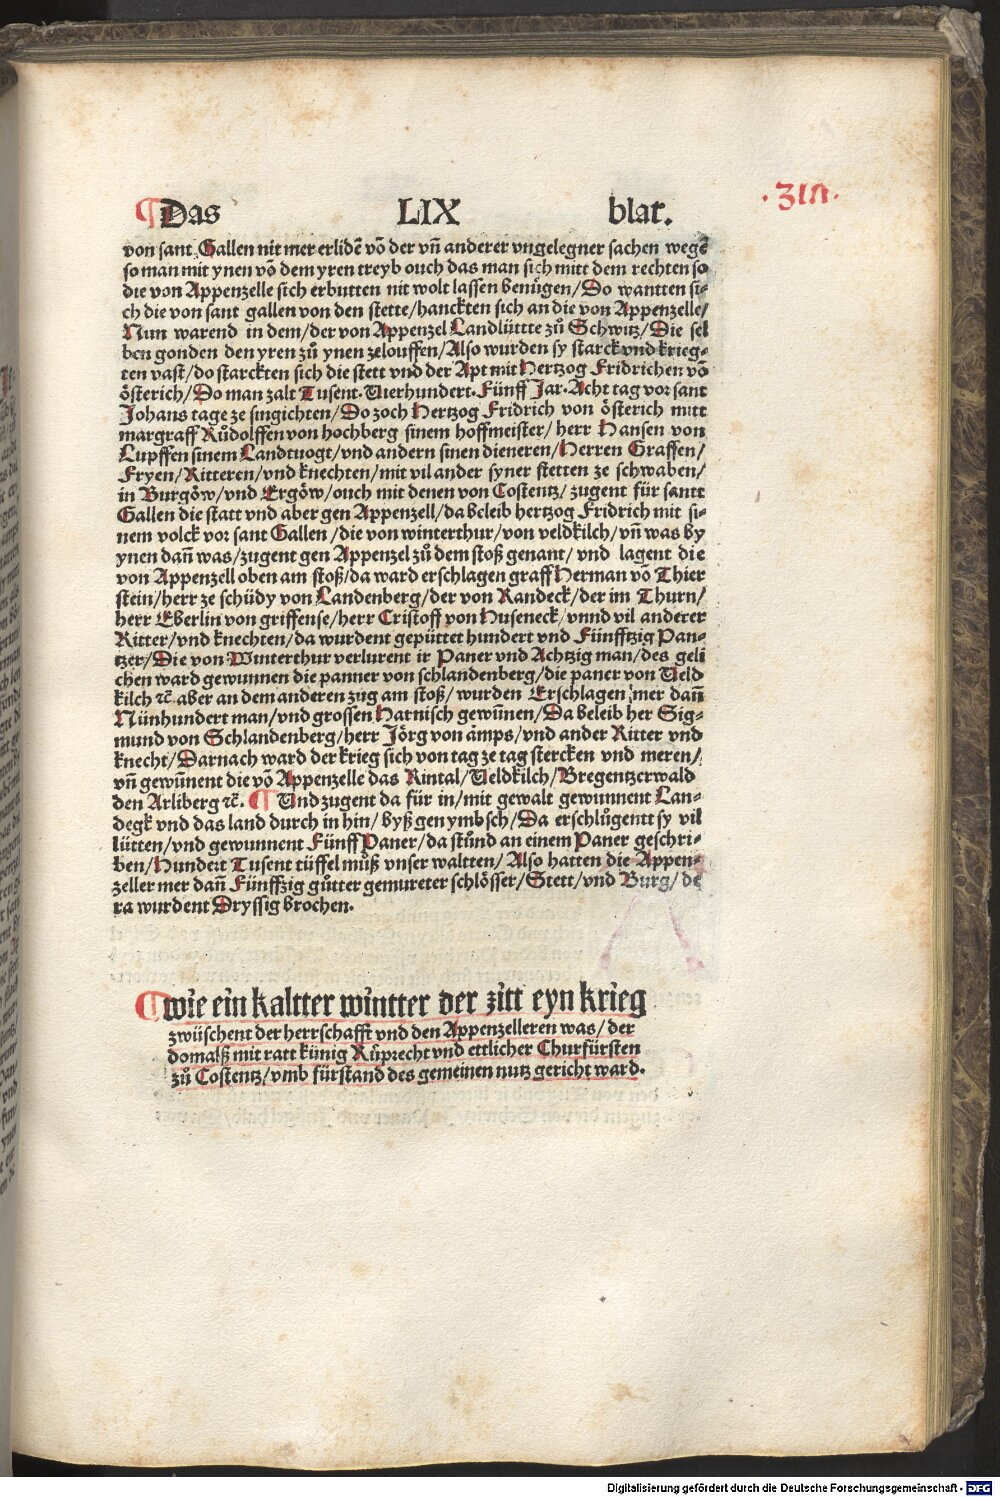 ¶Das LIX blat.
·31Λ·
von sant Gallen nit mer erlidē vō der vn̄ anderer vngelegner sachen wegē
so man mit ynen vō dem yren treyb ouch das man sich mitt dem rechten so
die von Appenzelle sich erbutten nit wolt lassen benu̓gen/So wantten si-
ch die von sant gallen von den stette/hanckten sich an die von Appenzelle/
Nun warend in dem/der von Appenzel Landlüttte zů Schwitz/Die sel
ben gonden den yren zů ynen zelouffen/Also wurden sy starck vnd krieg-
ten vast/do starckten sich die stett vnd der Apt mit Hertzog Fridrichen vō
österich/Do man zalt Tusent.Vierhundert.Fünff Jar.Acht tag vor sant
Johans tage ze singichten/Do zoch Hertzog Fridrich von österich mitt
margraff Růdolffen von hochberg sinem hoffmeister/herr Hansen von
Lupffen sinem Landtuogt/vnd andern sinen dieneren/Herren Graffen/
Fryen/Ritteren/vnd knechten/mit vil ander syner stetten ze schwaben/
in Burgöw/vnd Ergöw/ouch mit denen von Costentz/zugent für santt
Gallen die statt vnd aber gen Appenzell/da beleib hertzog Fridrich mit si-
nem volck vor sant Gallen/die von winterthur/von veldkilch/vn̄ was by
ynen dan̄ was/zugent gen Appenzel zů dem stoß genant/vnd lagent die
von Appenzell oben am stoß/da ward erschlagen graff Herman vō Thier
stein/herr ze schüdy von Landenberg/der von Randeck/der im Thurn/
herr Eberlin von griffense/herr Cristoff von Huseneck/vnnd vil anderer
Ritter/vnd knechten/da wurdent gepüttet hundert vnd Fünfftzig Pan-
tzer/Die von Winterthur verlurent ir Paner vnd Achtzig man/des geli
chen ward gewunnen die panner von schlandenberg/die paner von Veld
kilch ꝛc̄ aber an dem anderen zug am stoß/wurden Erschlagen mer dan̄
Nünhundert man/vnd grossen Harnisch gewūnen/Da beleib her Sig-
mund von Schlandenberg/herr Jörg von āmps/vnd ander Ritter vnd
knecht/Darnach ward der krieg sich von tag ze tag stercken vnd meren/
vn̄ gewūnent die vō Appenzelle das Rintal/Veldkilch/Bregentzerwald
den Arliberg ꝛc̄. ¶Vnd zugent da für in/mit gewalt gewunnent Lan-
degk vnd das land durch in hin/byß gen ymbsch/Da erschlůgentt sy vil
lütten/vnd gewunnent Fünff Paner/da stůnd an einem Paner geschri-
ben/Hundert Tusent tüffel müß vnser waltten/Also hatten die Appen-
zeller mer dan̄ Fünffzig gůtter gemureter schlösser/Stett/vnd Burg/de
ra wurdent Dryssig brochen.
¶wie ein kaltter wintter der zitt eyn krieg
zwüschent der herrschafft vnd den Appenzelleren was/der
domalß mit ratt künig Růprecht vnd ettlicher Churfürsten
zů Costentz/vmb fürstand des gemeinen nutz gericht ward.
Digitalisierung gefördert durch die Deutsche Forschungsgemeinschaft - DFG